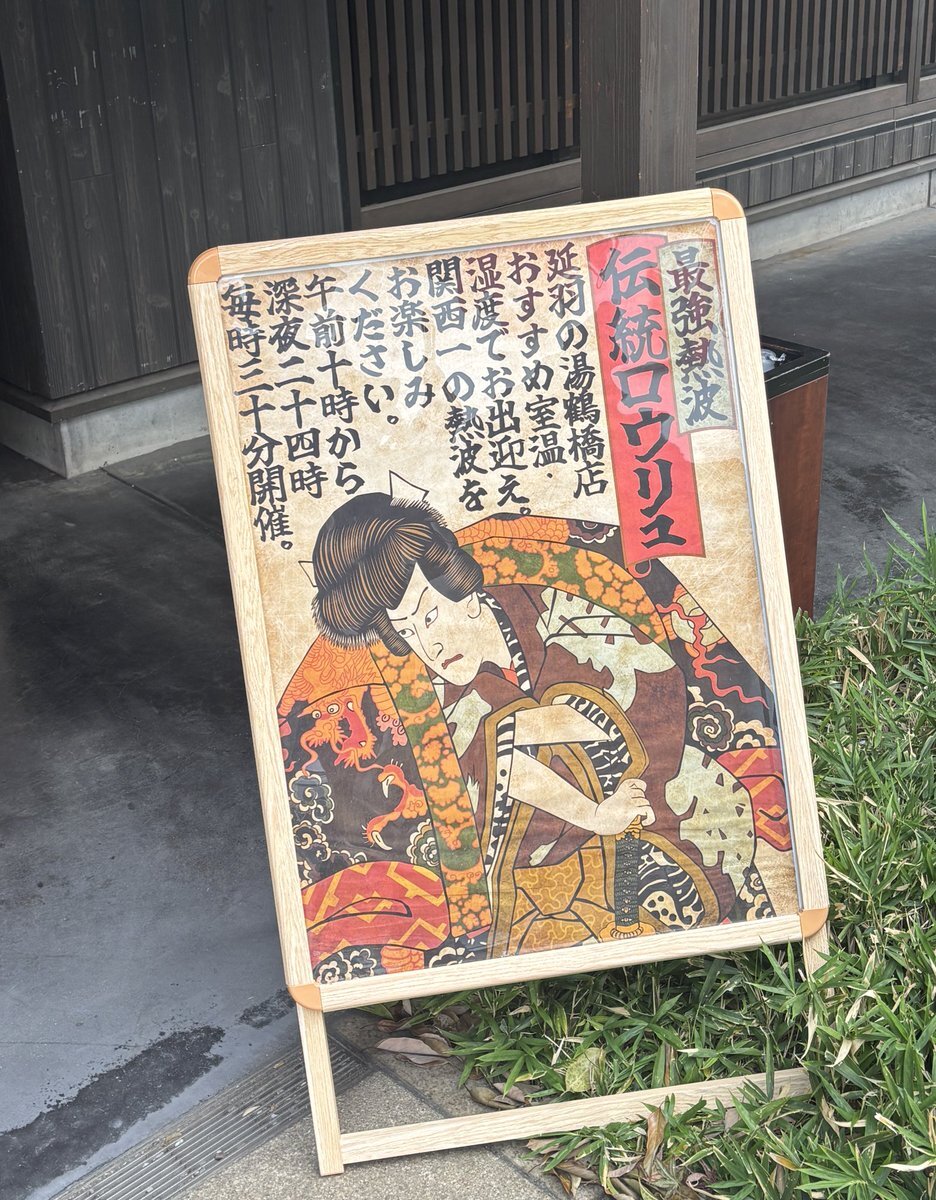 最強熱波
伝統ロウリュ
延羽の湯鶴橋店
おすすめ室温・
湿度でお出迎え。
関西一の熱波を
お楽しみ
ください。
午前十時から
深夜二十四時
毎時三十分開催。